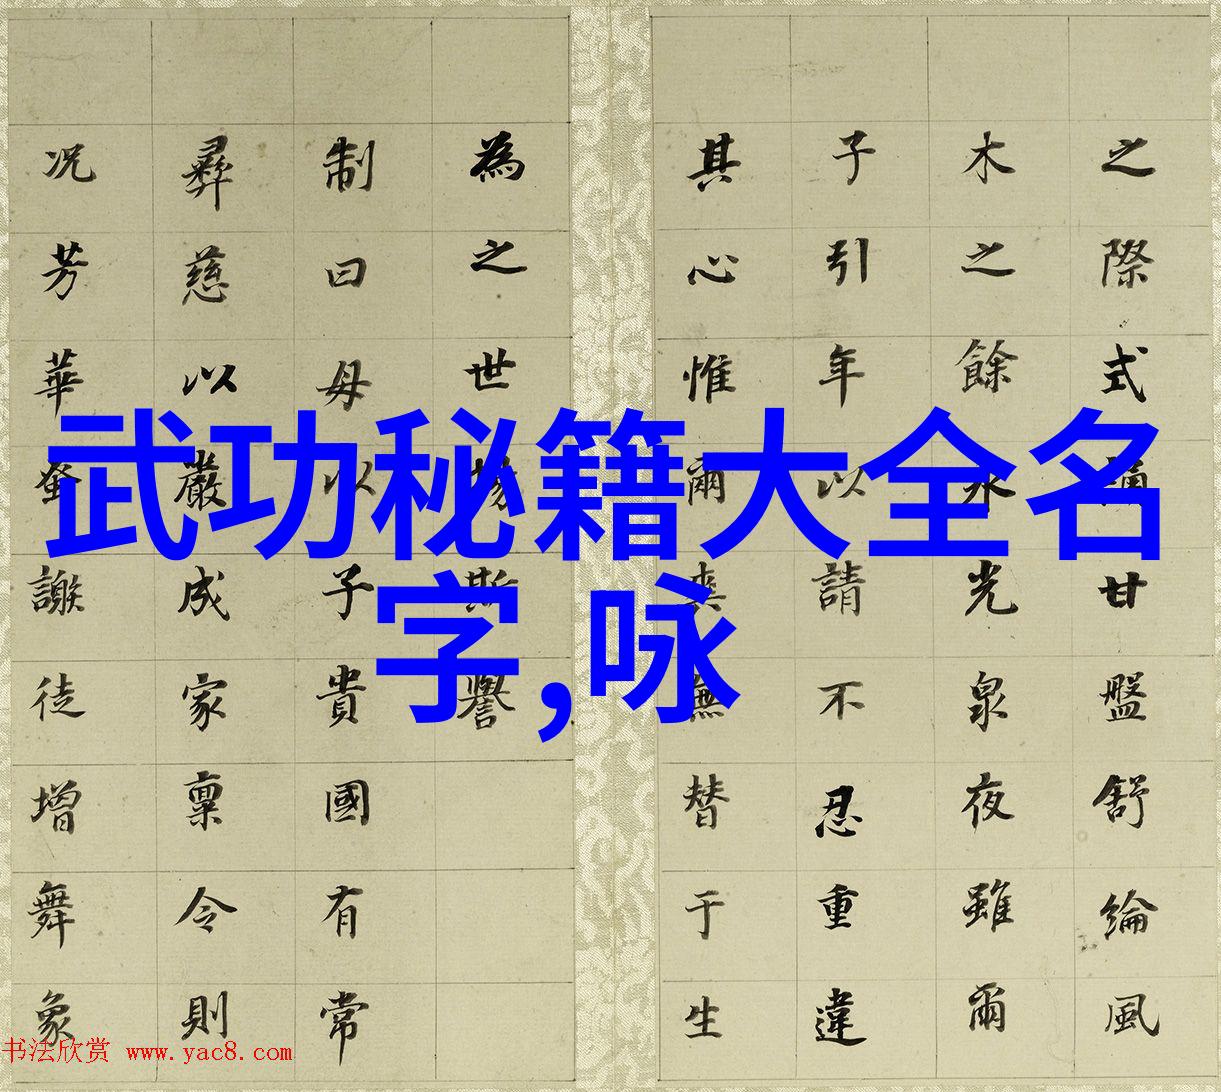 之際式甘盤舒綸風
木之餘光泉夜雖爾
子引年以請不忍重違
其心惟爾奭無替于生
為之世揚斯譽
制曰母以子貴國有常
彝慈以嚴成家稟令則
况芳華蚤謝徒增舞象
武功秘籍大全名
字,咏
书法欣赏 www.yac8.com